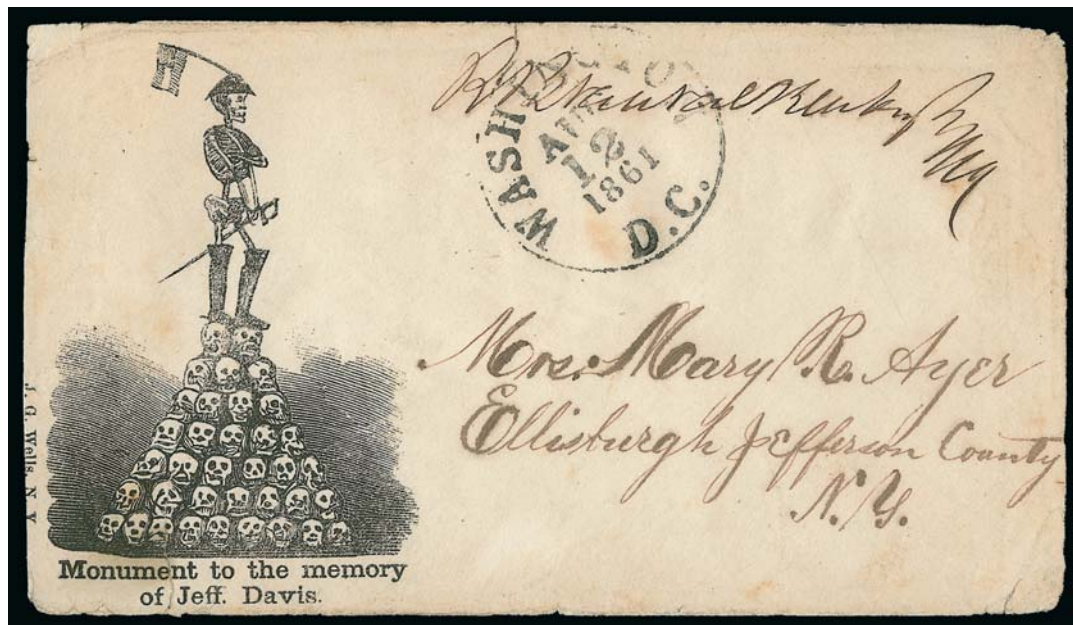 WASHINGTON
AUG
12
1861
D.C.
Mrs. Mary R. Ayer
Ellisburgh Jefferson County
N.Y.
J. G. Wells, N Y
Monument to the memory
of Jeff. Davis.